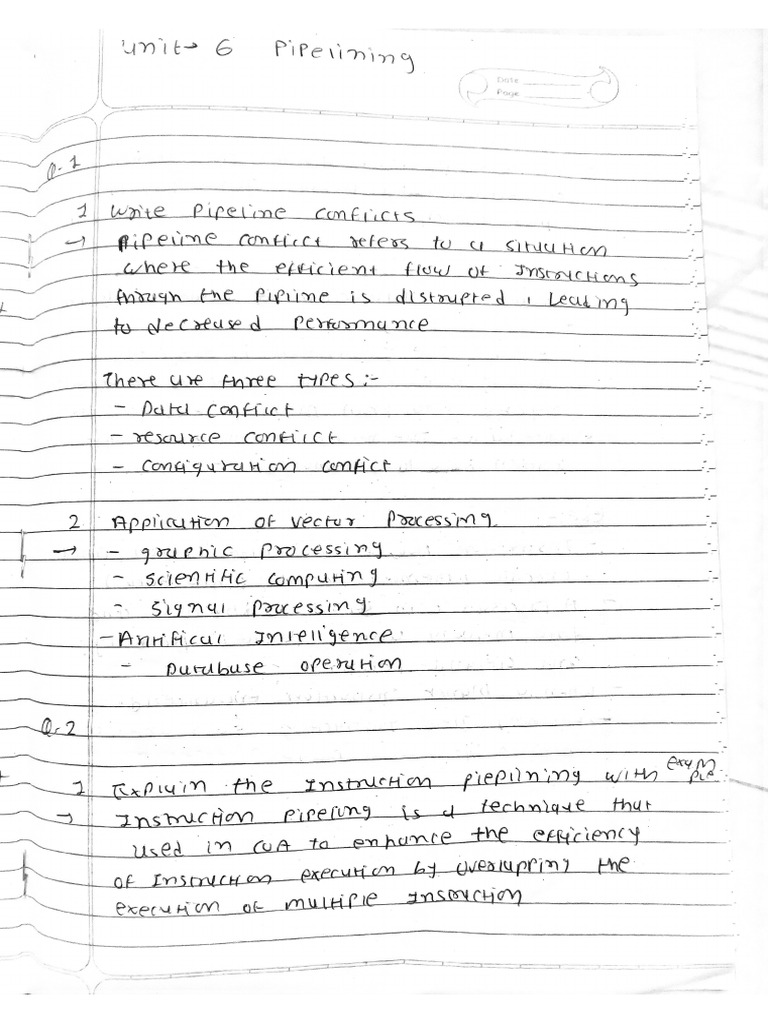 Unit→ 6 Pipelining
Date
Page
Q.1
1 Write Pipeline Conflicts
→ Pipeline conflict refers to a situation
where the efficient flow of Instructions
through the Pipline is distrupted, Leading
to decreased Performance
There are three types :-
- Data conflict
- resource conflict
- configuration conflict
2 Application of vector Processing
→ - graphic Processing
- scientific computing
- signal Processing
- Artifical Intelligence
- Database operation
Q.2
1 Explain the Instruction piepilning with example
→ Instruction Pipeling is a technique that
used in COA to enhance the efficiency
of Instruction execution by overlapping the
execution of multiple Instruction